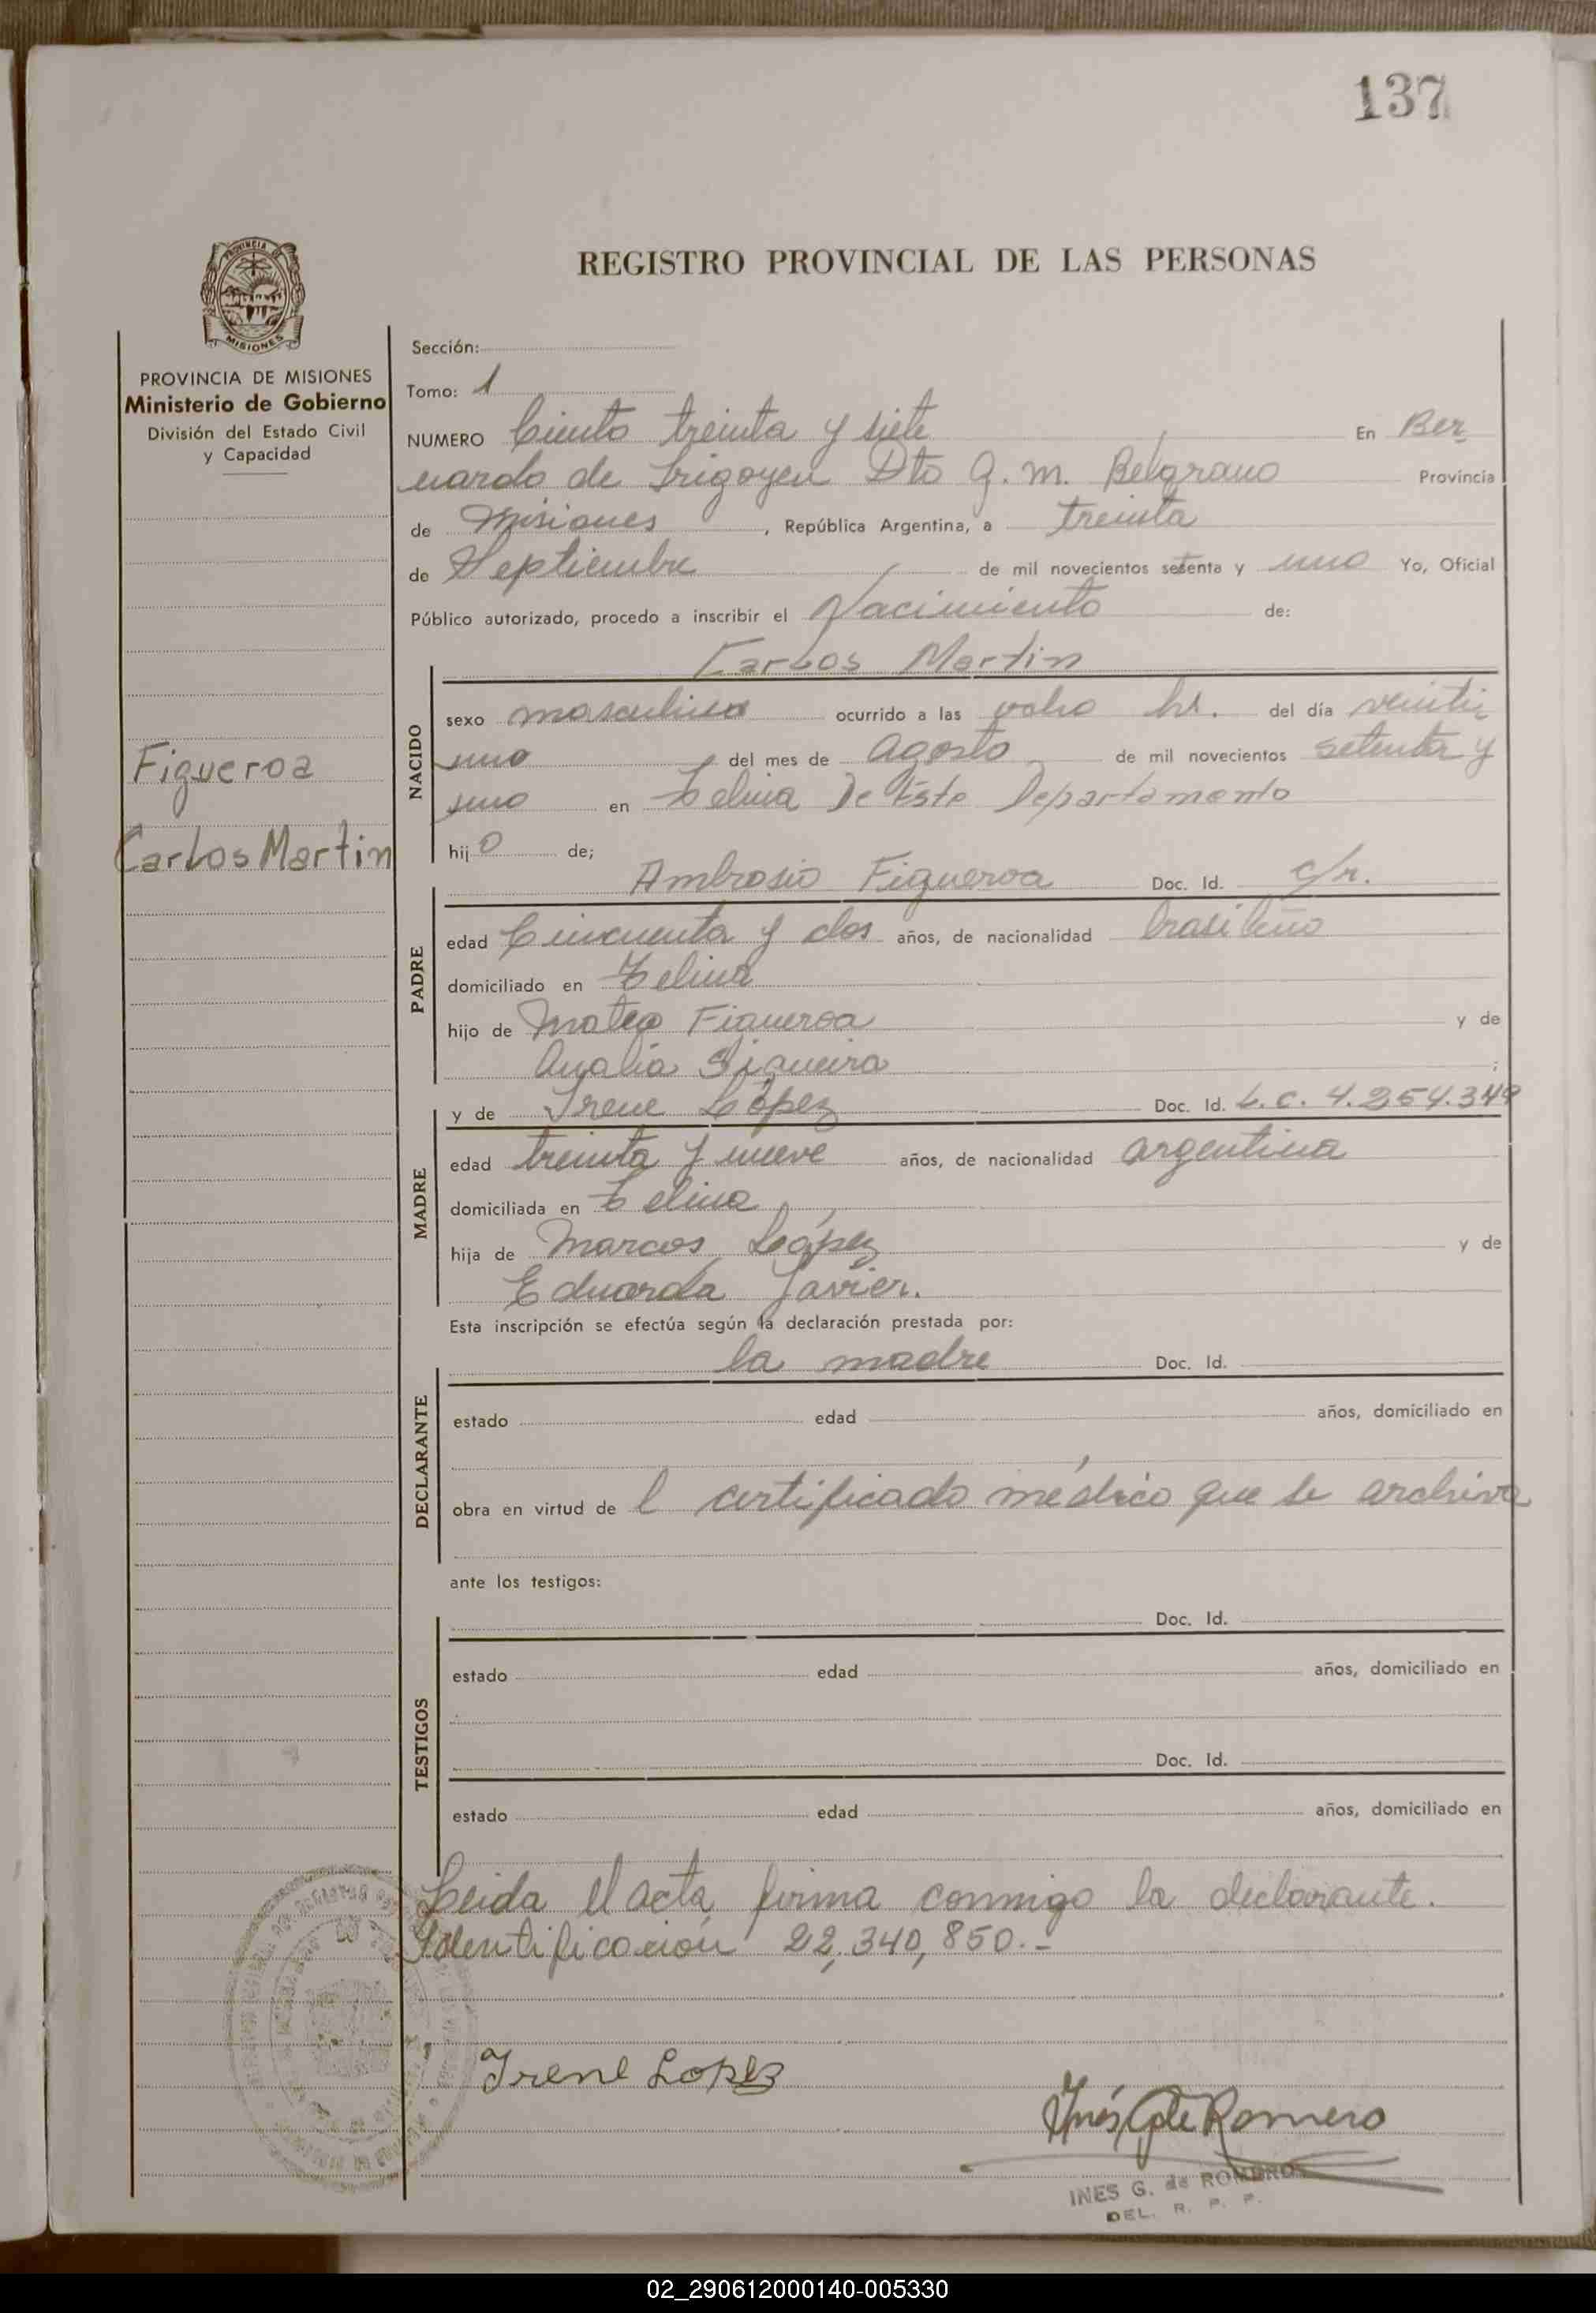 137
REGISTRO PROVINCIAL DE LAS PERSONAS
PROVINCIA
MISIONES
PROVINCIA DE MISIONES
Ministerio de Gobierno
División del Estado Civil
y Capacidad
Figueroa
Carlos Martin
Sección:
Tomo: 1
NUMERO Ciento treinta y siete En Ber
nardo de Irigoyen Dto G. M. Belgrano Provincia
de Misiones, República Argentina, a treinta
de Septiembre de mil novecientos setenta y uno Yo, Oficial
Público autorizado, procedo a inscribir el Nacimiento de:
Carlos Martin
NACIDO
sexo masculino ocurrido a las ocho hs. del día veinti
uno del mes de Agosto de mil novecientos setenta y
uno en De Este Departamento
hijo de;
Ambrosio Figueroa Doc. Id. c/r.
PADRE
edad Cincuenta y dos años, de nacionalidad brasileño
domiciliado en
hijo de Mateo Figueroa y de
Analia Siqueira ;
y de Irene López Doc. Id. L.C. 4.254.349
MADRE
edad treinta y nueve años, de nacionalidad argentina
domiciliada en
hija de Marcos López y de
Eduarda Javier.
Esta inscripción se efectúa según la declaración prestada por:
la madre Doc. Id.
DECLARANTE
estado edad años, domiciliado en
obra en virtud de l certificado médico que se archiva
ante los testigos:
Doc. Id.
TESTIGOS
estado edad años, domiciliado en
Doc. Id.
estado edad años, domiciliado en
Leida el acta firma conmigo la declarante.
Identificación 22,340,850.-
Irene Lopez
Inés G de Romero
INES G. de ROMERO
DEL. R. P. P.
02_290612000140-005330